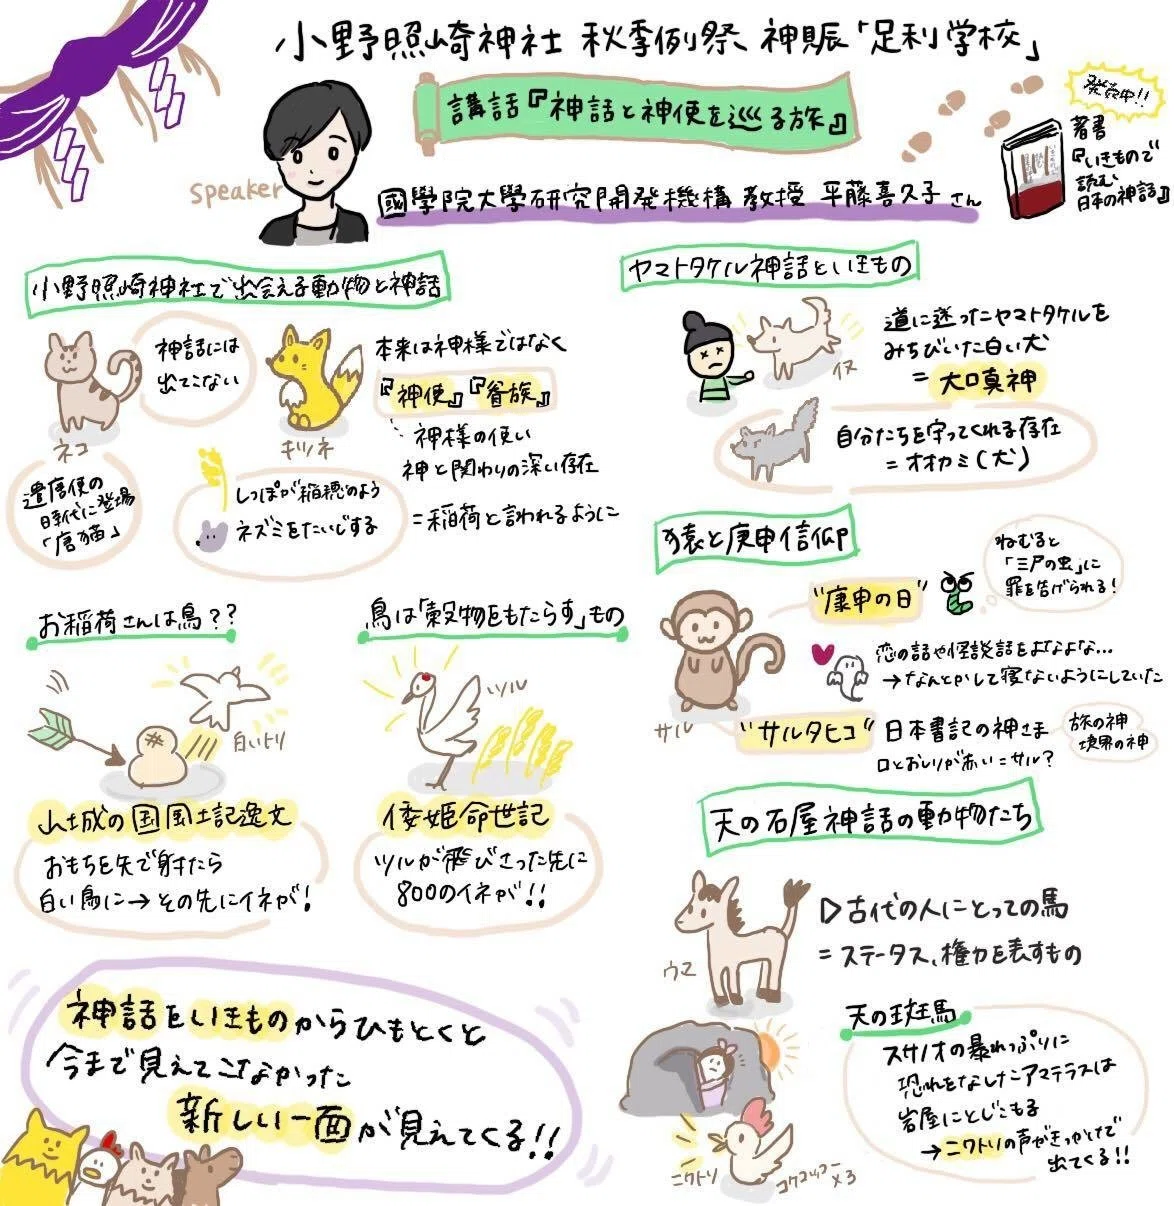 小野照崎神社 秋季例祭、神賑「足利学校」
講話『神話と神使を巡る旅』
speaker
國學院大學研究開発機構 教授 平藤喜久子さん
発売中!!
著書
『いきもので
読む
日本の神話』
小野照崎神社で出会える動物と神話
ネコ
神話には
出てこない
遣唐使の
時代に登場
「唐猫」
キツネ
しっぽが稲穂のよう
ネズミをたいじする
本来は神様ではなく
『神使』『眷族』
神様の使い
神と関わりの深い存在
=稲荷と言われるように
お稲荷さんは鳥??
白いトリ
山城の国風土記逸文
おもちを矢で射たら
白い鳥に→その先にイネが!
鳥は「穀物をもたらす」もの
ツル
倭姫命世記
ツルが飛びさった先に
800のイネが!!
神話をいきものからひもとくと
今まで見えてこなかった
新しい一面が見えてくる!!
ヤマトタケル神話といきもの
イヌ
道に迷ったヤマトタケルを
みちびいた白い犬
=大口真神
自分たちを守ってくれる存在
=オオカミ(犬)
猿と庚申信仰
サル
"庚申の日"
ねむると
「三尸の虫」に
罪を告げられる!
恋の話や怪談話をよなよな...
→なんとかして寝ないようにしていた
"サルタヒコ" 日本書記の神さま
口とおしりが赤い=サル?
旅の神
境界の神
天の石屋神話の動物たち
ウマ
▷古代の人にとっての馬
=ステータス、権力を表すもの
天の斑馬
スサノオの暴れっぷりに
恐れをなしたアマテラスは
岩屋にとじこもる
→ニワトリの声がきっかけで
出てくる!!
ニワトリ
コケコッコー
×3